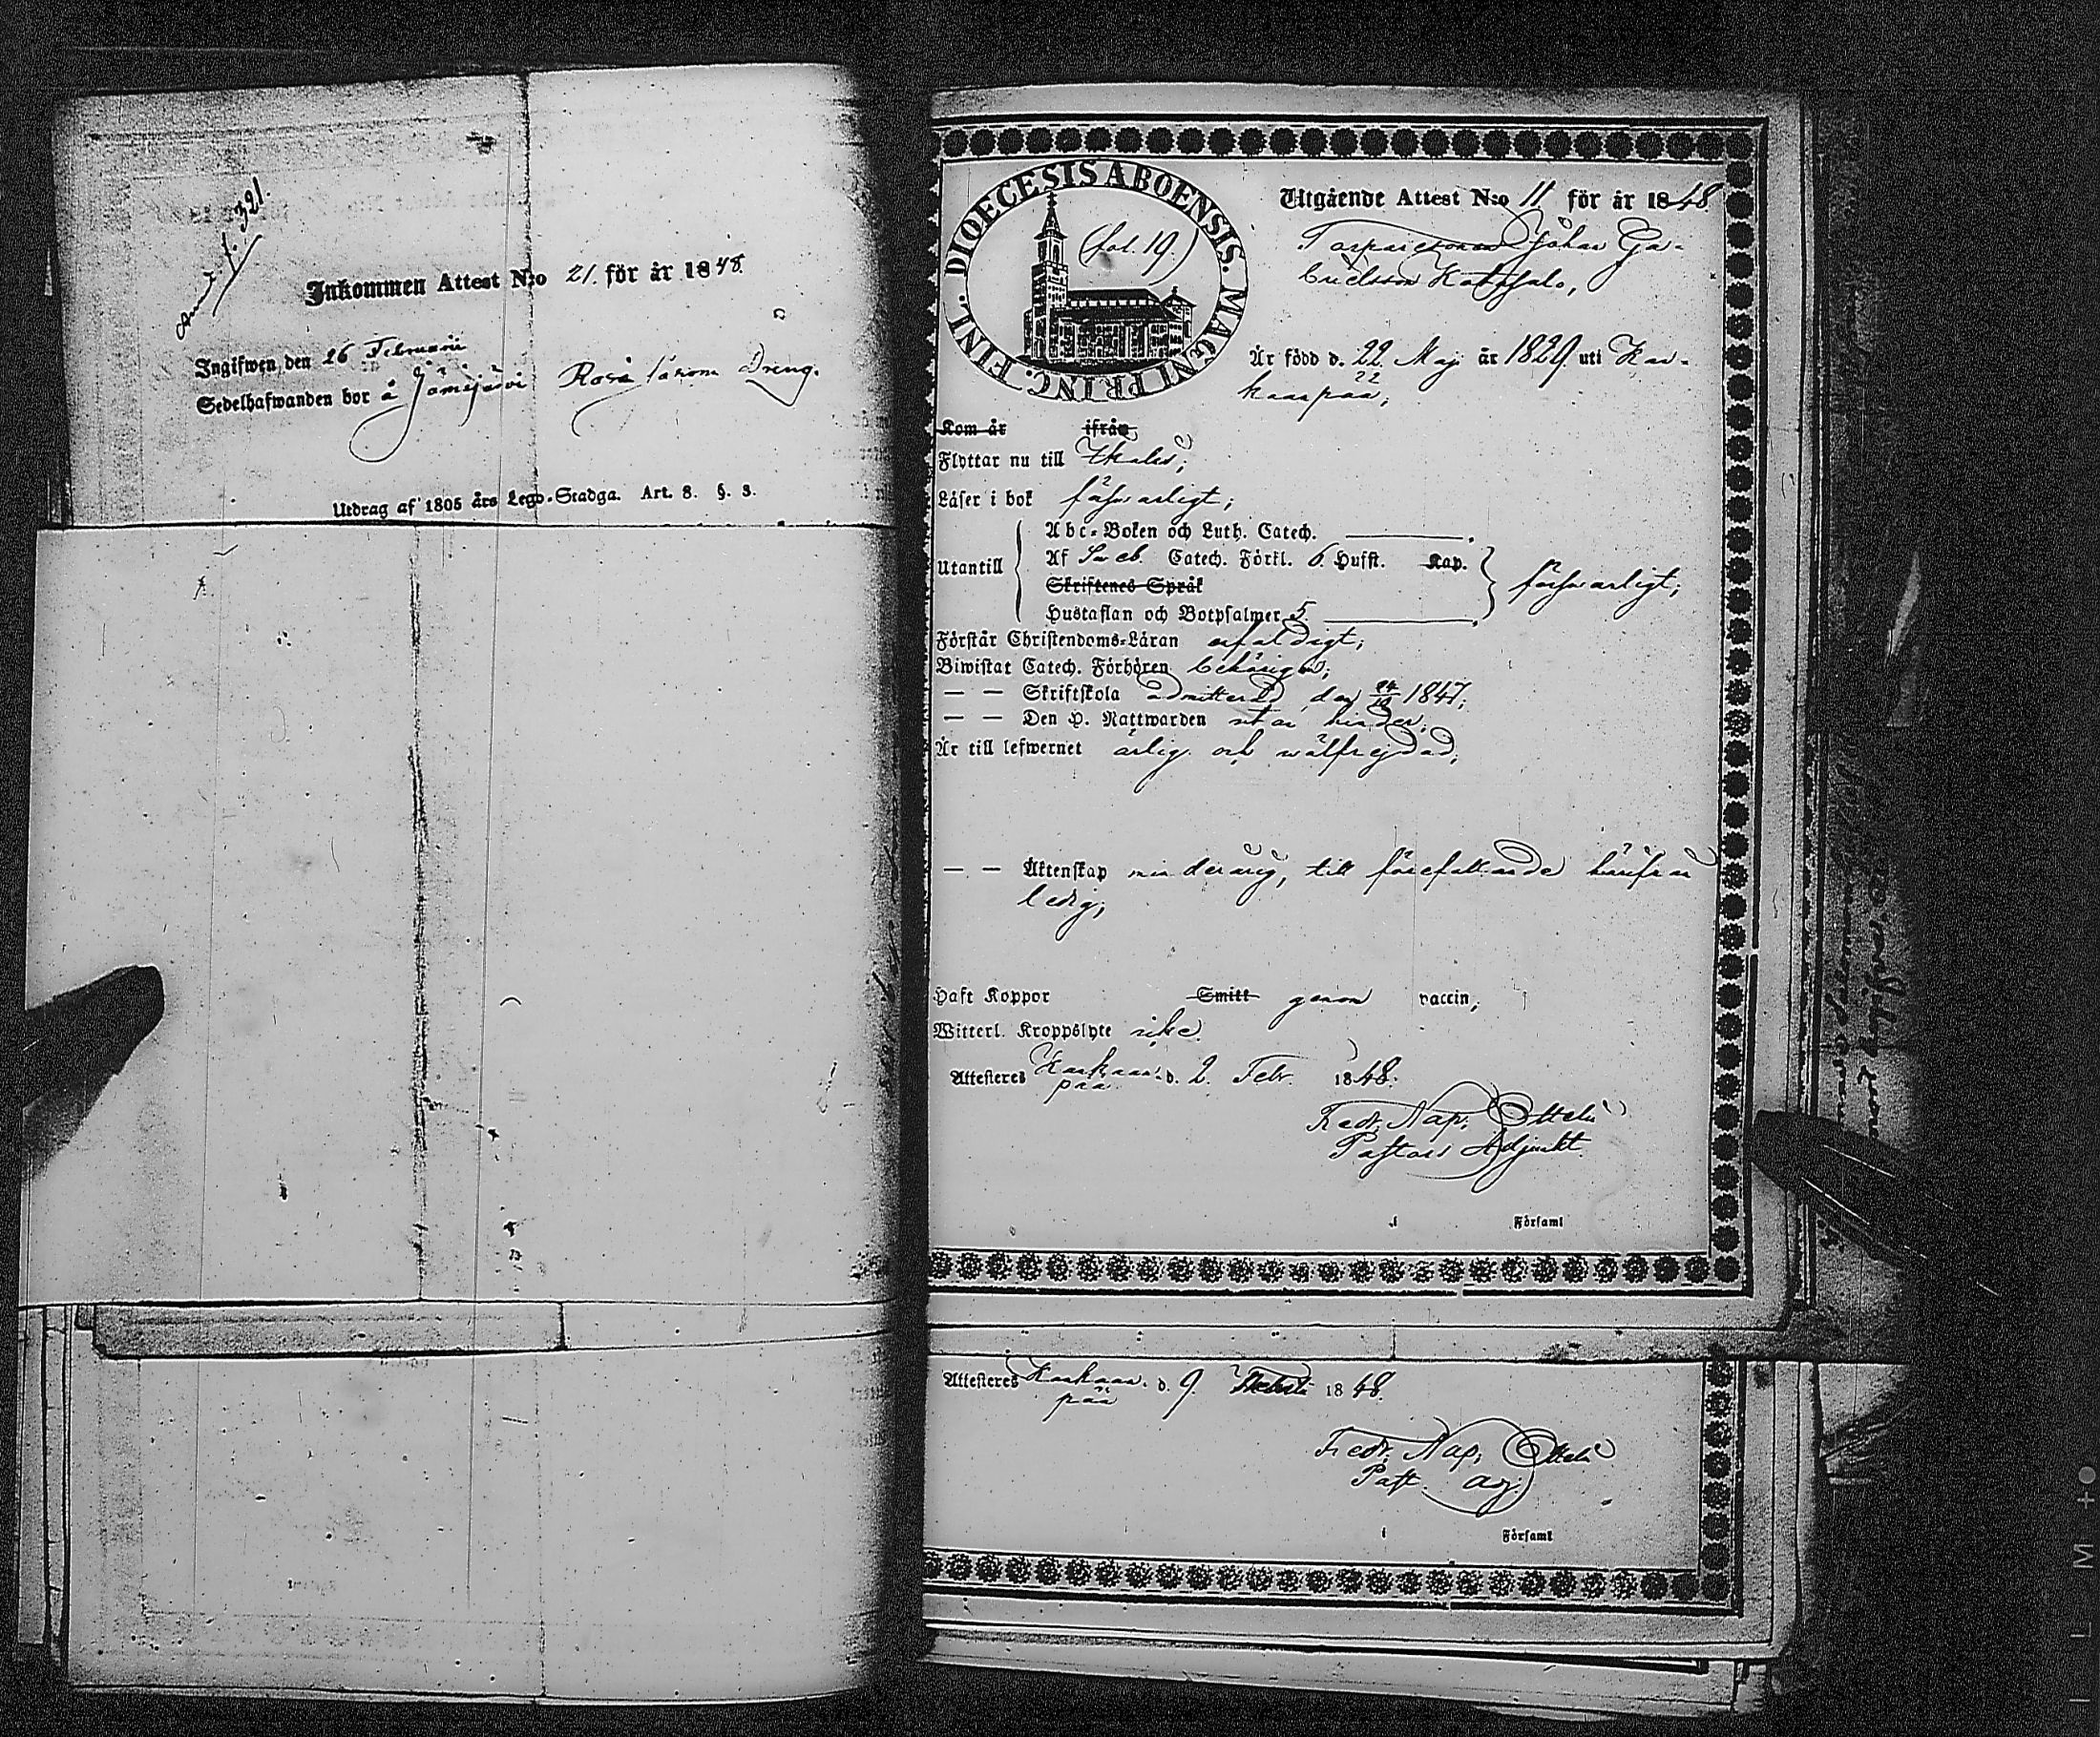 Anmd f. 321.
Inkommen Attest N:o 21. för år 1848.
Ingifwen den 26 Februarii
Sedelhafwanden bor å Jämijärvi Rosi såsom Dreng.
Utdrag af 1805 års Lego-Stadga. Art. 8. §. 3.
DIOECESIS ABOENSIS. MAGNI PRINC. FINL.
(fol. 19.)
Utgående Attest N:o 11 för år 1848.
Torparesonen Johan Ga-
brielsson
Är född d. 22 Maj år 1829 uti Kan-
kaanpää;
Kom år ifrån
Flyttar nu till Ikalis;
Läser i bok förswarligt;
Abc-Boken och Luth. Catech.
Utantill Af Sveb. Catech. Förkl. 6 Hufst. Kap. förswarligt;
Skriftenes Språk
Hustaflan och Botpsalmer 5.
Förstår Christendoms-Läran enfaldigt;
Biwistat Catech. Förhören behörigen;
— — Skriftskola admitterad den 1847;
— — Den H. Nattwarden utan hinder;
Är till lefwernet ärlig och wälfrejdad;
— — Äktenskap minderårig, till förefallande härifrån
ledig;
Haft Koppor Smitt genom vaccin;
Witterl. Kroppslyte icke.
Attesteres Kankaan-
pää d. 2. Febr. 1848.
Fredr. Nap. Ottelin
Pastors Adjunkt.
i Församl
Attesteres Kankaan-
pää d. 9. 1848.
Fredr. Nap. Ottelin
Past. adj.
i Församl